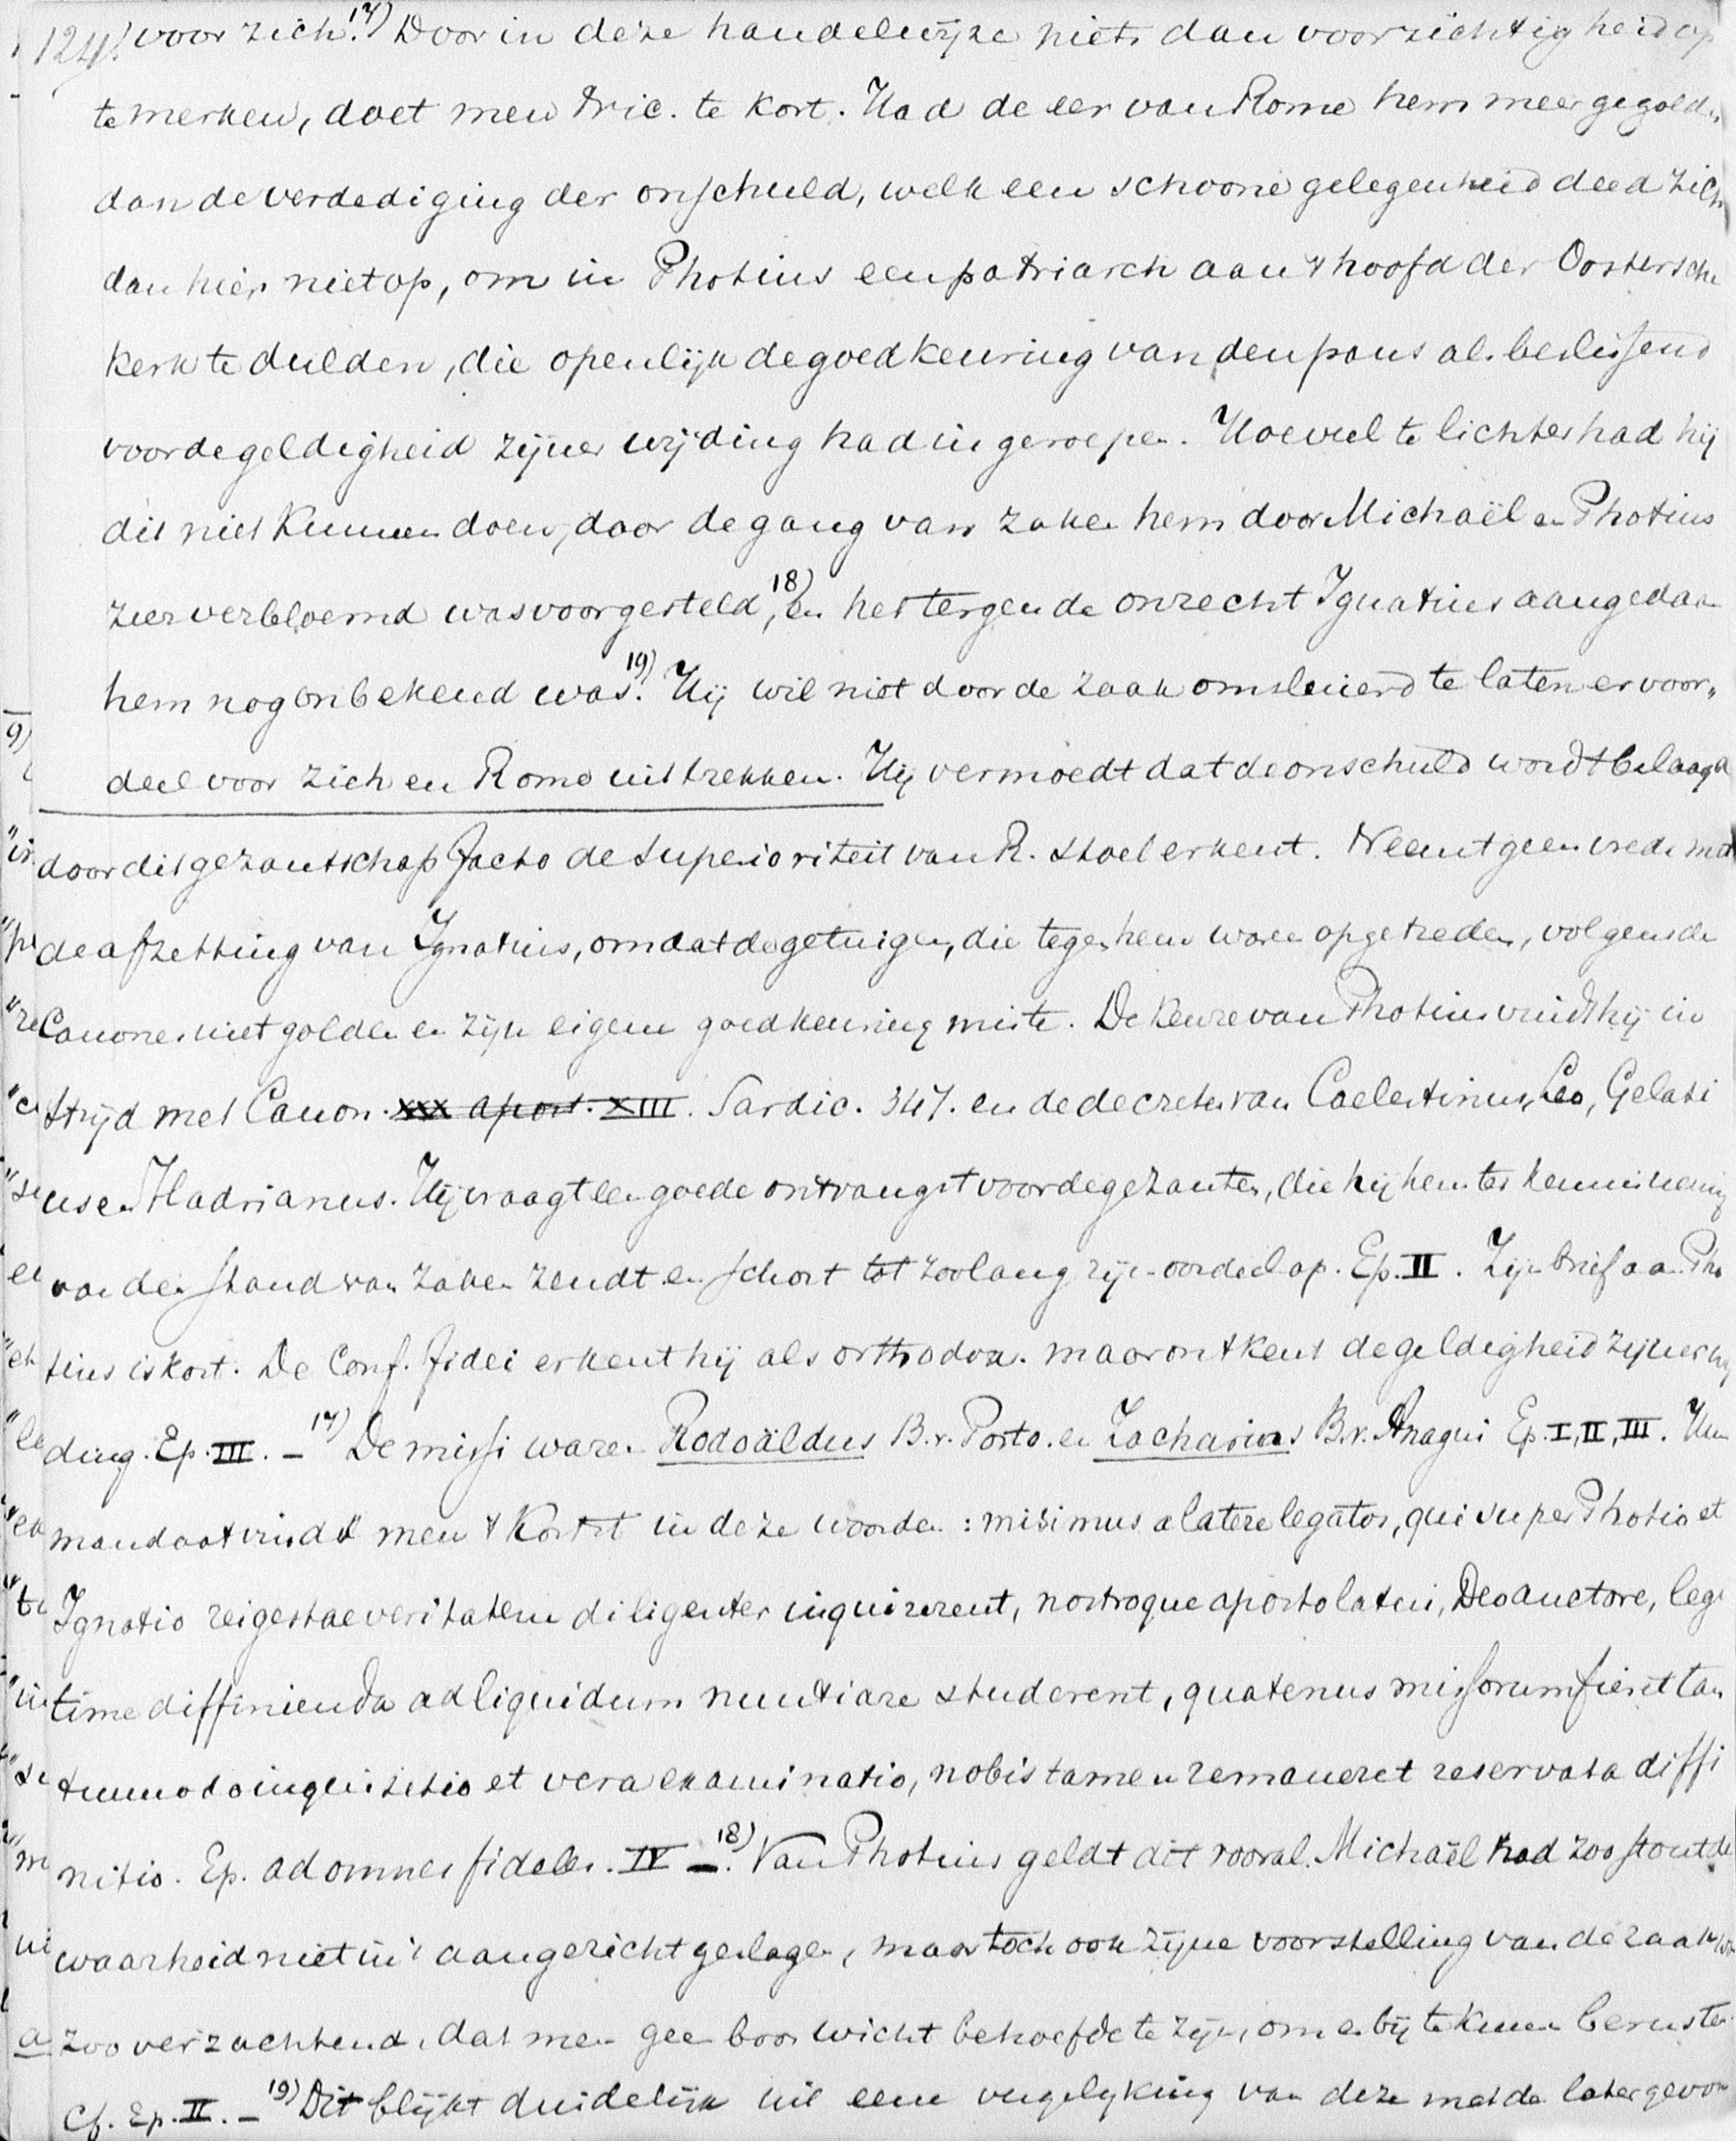 124. voor zich.17) Door in deze handelwijze niets dan voorzichtigheid op
te merken, doet men Nic. te kort. Had de eer van Rome hem meer gegolden
dan de verdediging der onschuld, welk een schoone gelegenheid deed zich
dan hier niet op, om in Photius een patriarch aan 't hoofd der Oostersche
kerk te dulden, die openlijk de goedkeuring van den paus als beslissend
voor de geldigheid zijner wijding had ingeroepen. Hoeveel te lichter had hij
dit niet kunnen doen, daar de gang van zaken hem door Michaël en Photius
zeer verbloemd was voorgesteld,18) en het tergende onrecht Ignatius aangedaan
hem nog onbekend was.19) Hij wil niet door de zaak omsluierd te laten er voor„
deel voor zich en Rome uit trekken. Hij vermoedt dat de onschuld wordt belaagd
door dit gezantschap facto de superioriteit van R. stoel erkent. Neemt geen vrede met
de afzetting van Ignatius, omdat de getuigen, die tegen hem waren opgetreden, volgens de
Canones niet golden en zijn eigene goedkeuring miste. De keuze van Photius vindt hij in
strijd met Canon. xxx apost. XIII. Sardic. 347. en de decreten van Caelestinus, Leo, Gelasi
us en Hadrianus. Hij vraagt een goede ontvangst voor de gezanten, die hij hem ter kennisneming
van den stand van zaken zendt en schort tot zoolang zijn oordeel op. Ep. II. Zijn brief aan Pho
tius is kort. De Conf. fidei erkent hij als orthodox. maar ontkent de geldigheid zijner wij
ding. Ep. III. – 17) De missi waren Rodoäldus B. v. Porto. en Zacharias B. v. Anagni Ep. I, II, III. Hun
mandaat vindt men 't kortst in deze woorden: misimus a latere legatos, qui super Photio et
Ignatio rei gestae veritatem diligenter inquirerent, nostroque apostolatui, Deo auctore, legi
time diffinienda ad liquidum nuntiare studerent, quatenus missorum fieret tan
tummodo inquisitio et vera examinatio, nobis tamen remaneret reservata diffi
nitio. Ep. ad omnes fideles. IV –. 18) Van Photius geldt dit vooral. Michaël had zoo stout de
waarheid niet in 't aangezicht geslagen, maar toch ook zijne voorstelling van de zaak was
zoo verzachtend, dat men geen booswicht behoefde te zijn, om er bij te kunnen berusten.
Cf. Ep. II. – 19) Dit blijkt duidelijk uit eene vergelijking van deze met de later gevon